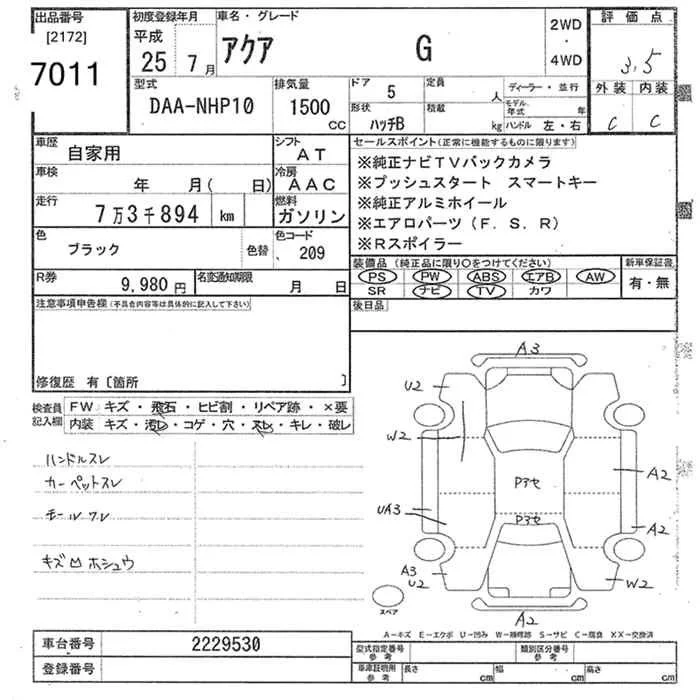 出品番号
[2172]
7011
初度登録年月
平成
25年7月
車名・グレード
アクア G
2WD
・
4WD
評価点
3.5
外装 内装
C C
型式
DAA-NHP10
排気量
1500
CC
ドア 5
形状
ハッチB
定員
人
積載
kg
ディーラー・並行
モデル年式 年
ハンドル 左・右
車歴 自家用
シフト AT
車検 年 月( 日)
冷房 AAC
走行 7万3千894 km
燃料 ガソリン
色 ブラック 色替
色コード 209
R券 9,980円
名変通知期限 月 日
セールスポイント(正常に機能するものに限ります)
※純正ナビTVバックカメラ
※プッシュスタート スマートキー
※純正アルミホイール
※エアロパーツ(F.S.R)
※Rスポイラー
装備品 (純正品に限り○をつけてください)
PS PW ABS エアB AW
SR ナビ TV カワ
新車保証書
有・無
後日品
注意事項申告欄(不具合内容等は具体的に記入して下さい)
修復歴 有〔箇所 〕
検査員記入欄
FW キズ・飛石・ヒビ割・リペア跡・×要
内装 キズ・汚レ・コゲ・穴・スレ・キレ・破レ
ハンドルスレ
カーペットスレ
モールワレ
キズ凹ホシュウ
A3
U2
W2
A2
Pアセ
UA3
Pアセ
A2
A3
U2
W2
スペア
A2
A-キズ E-エクボ U-凹み W-補修跡 S-サビ C-腐食 XX-交換済
車台番号 2229530
登録番号
型式指定番号
参考
類別区分番号
参考
車庫証明用
参考
長さ cm 幅 cm 高さ cm